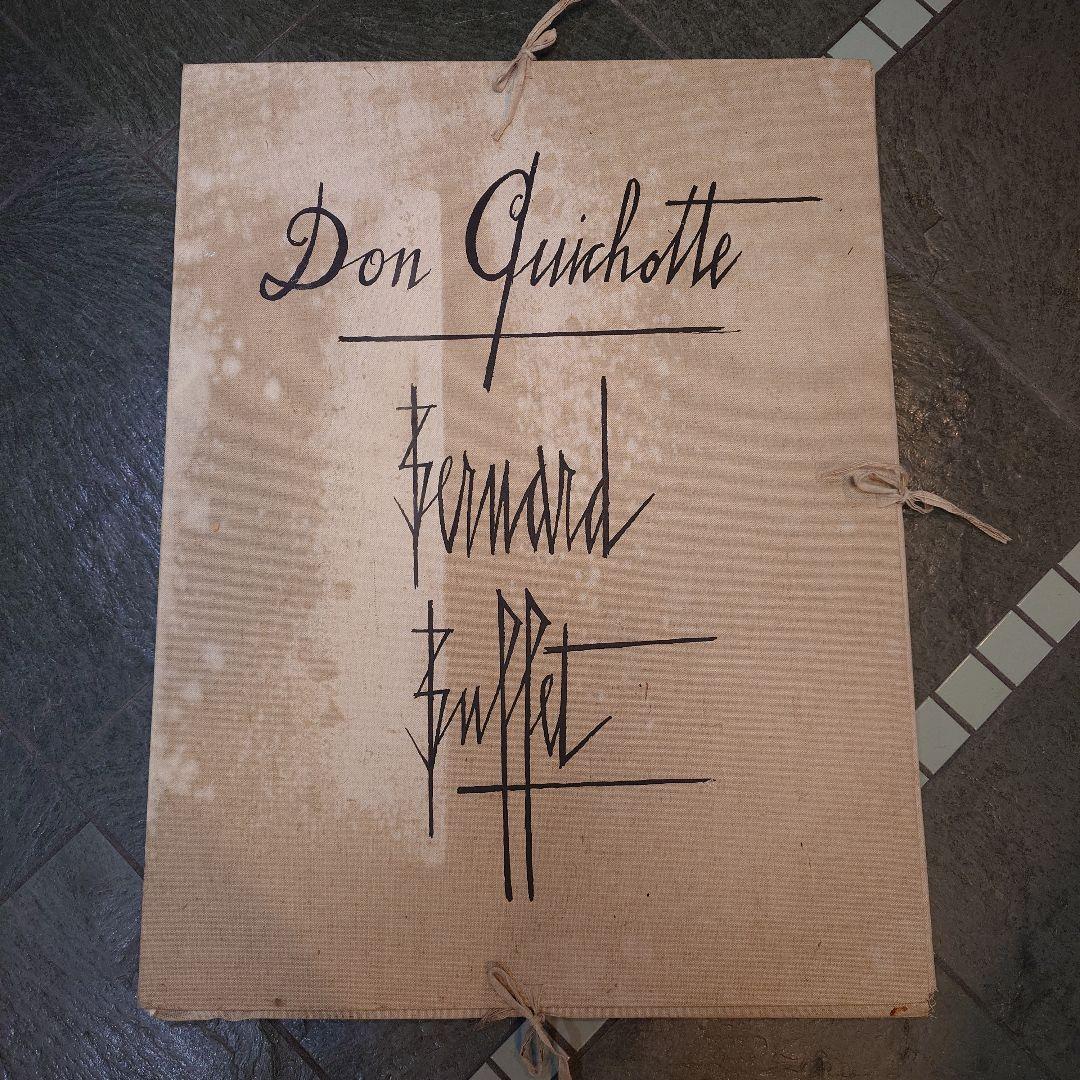 Don Quichotte
Bernard
Buffet